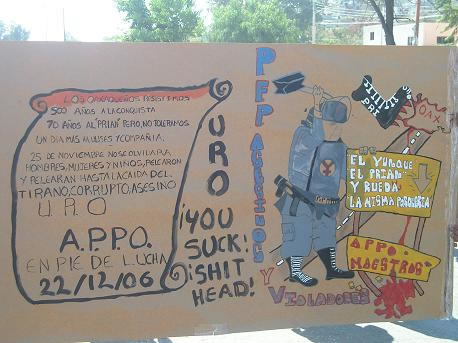 LOS OAXAQUEÑOS RESISTEMOS
500 AÑOS A LA CONQUISTA
70 AÑOS AL PRIAN PERO, NO TOLERAMOS
UN DIA MAS A ULISES Y COMPAÑIA.
25 DE NOVIEMBRE NO SE OLVIDARA
HOMBRES, MUJERES Y NIÑOS, PELEARON
Y PELEARAN HASTA LA CAIDA DEL
TIRANO, CORRUPTO, ASESINO
U.R.O
A.P.P.O.
EN PIE DE LUCHA
22/12/06
URO
¡YOU
SUCK!
¡SHIT
HEAD!
PFP ASESINOS
Y VIOLADORES
PRI
OAX
EL YUNQUE
EL PRIAN
Y RUEDA
LA MISMA PORQUERIA
APPO
MAESTROS